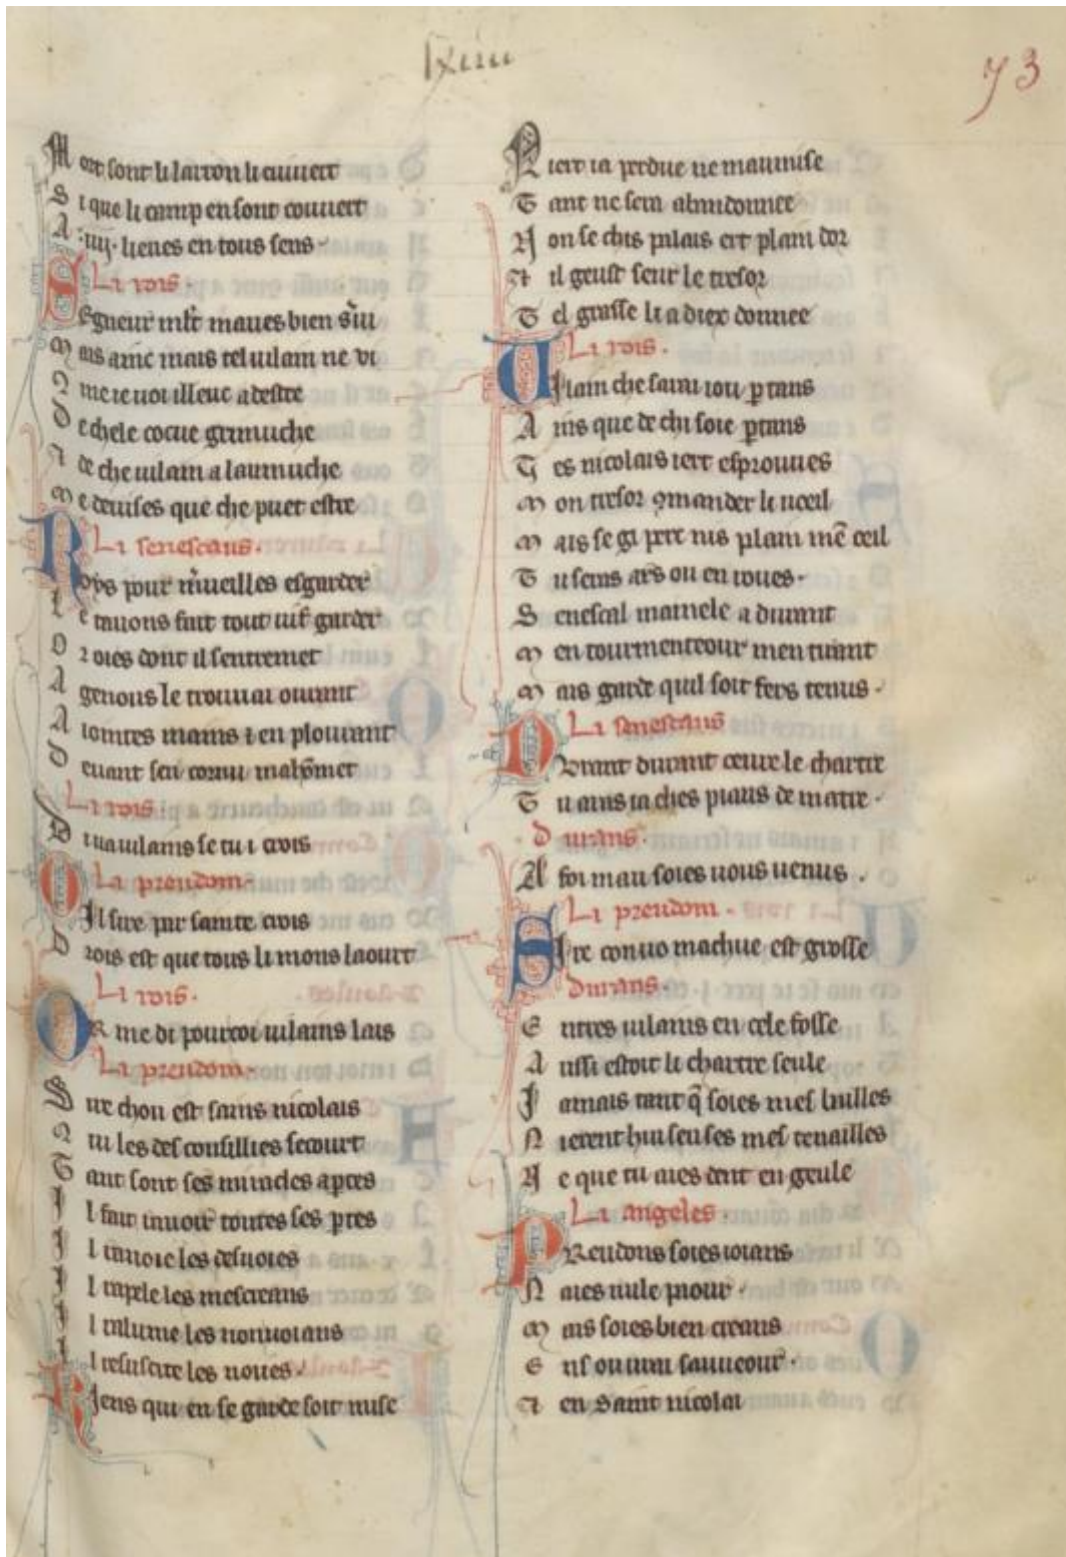 lxiiii
73
Mort sont li larron li cuivert
Si que li camp en sont couvert
A .iiij. lieues en tous sens
Li rois.
Segneur mlt maves bien s'ui
Mais ainc mais tel vilain ne vi
Qme ie voi illeuc a destre
De chele cocue grimuche
7 de che vilain a laumuche
Me devises que che puet estre
Li senescaus.
Roys pour m'veilles esgarder
Le tavons fait tout vif garder
Or oies dont il sentremet
A genous le trouvai ourant
A iointes mains 7 en plourant
Devant sen cornu mahommet
Li rois
Di va vilains se tu i crois
Li preudom
Oil sire par sainte crois
Drois est que tous li mons laourt
Li rois.
Or me di pourcoi vilains lais
Li preudom.
Sire chou est sains nicolais
Qui les desconsillies secourt
Tant sont ses miracles apertes
Il fait ravoir toutes ses ptes
Il ravoie les desvoies
Il rapele les mescreans
Il ralume les nonvoians
Il resuscite les noies.
Riens qui en se garde soit mise
N iert ia perdue ne maumise
Tant ne sera abandonnee
Non se chis palais ert plain dor
Et il geust seur le tresor
Tel grasse li a diex donnee
Li rois.
Vilain che sarai iou p tans
Ains que de chi soie ptans
Tes nicolais iert esprouves
Mon tresor 9mander li voeil
Mais se gi perc nis plain mē oeil
Tu seras ars ou en roues.
Senescal mainele a durant
Men tourmenteour men tirant
Mais garde quil soit fers tenus.
Li senescaus
Durant durant oevre le chartre
Tu aras ia ches piaus de martre.
durans.
A foi mau soies vous venus.
Li preudom.
Sire con vo machue est grosse
durans.
Entres vilains en cele fosse
Aussi estoit li chartre seule
Jamais tant q soies mes baillies
Nierent huiseuses mes tenailles
Ne que tu aies dent en geule
Li angeles.
Preudons soies ioians
Naies nule paour.
Mais soies bien creans
Ens ou vrai sauveour.
Et en saint nicolai